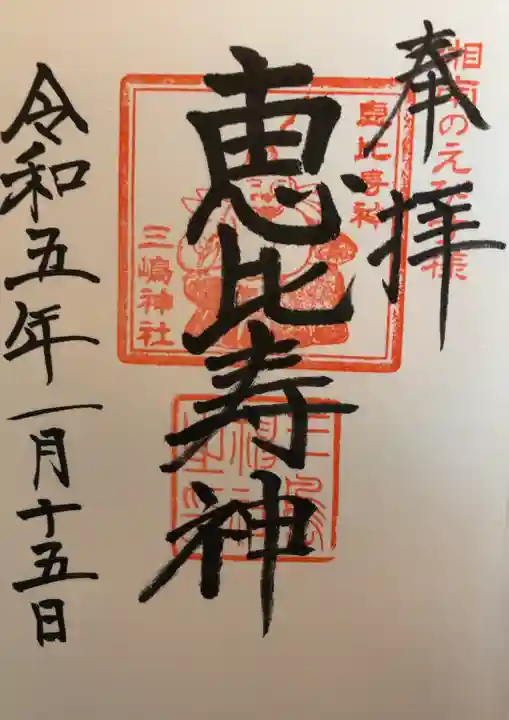 湘南のえびす様
奉拝
恵比寿神
恵比寿神
三嶋神社
令和五年一月十五日